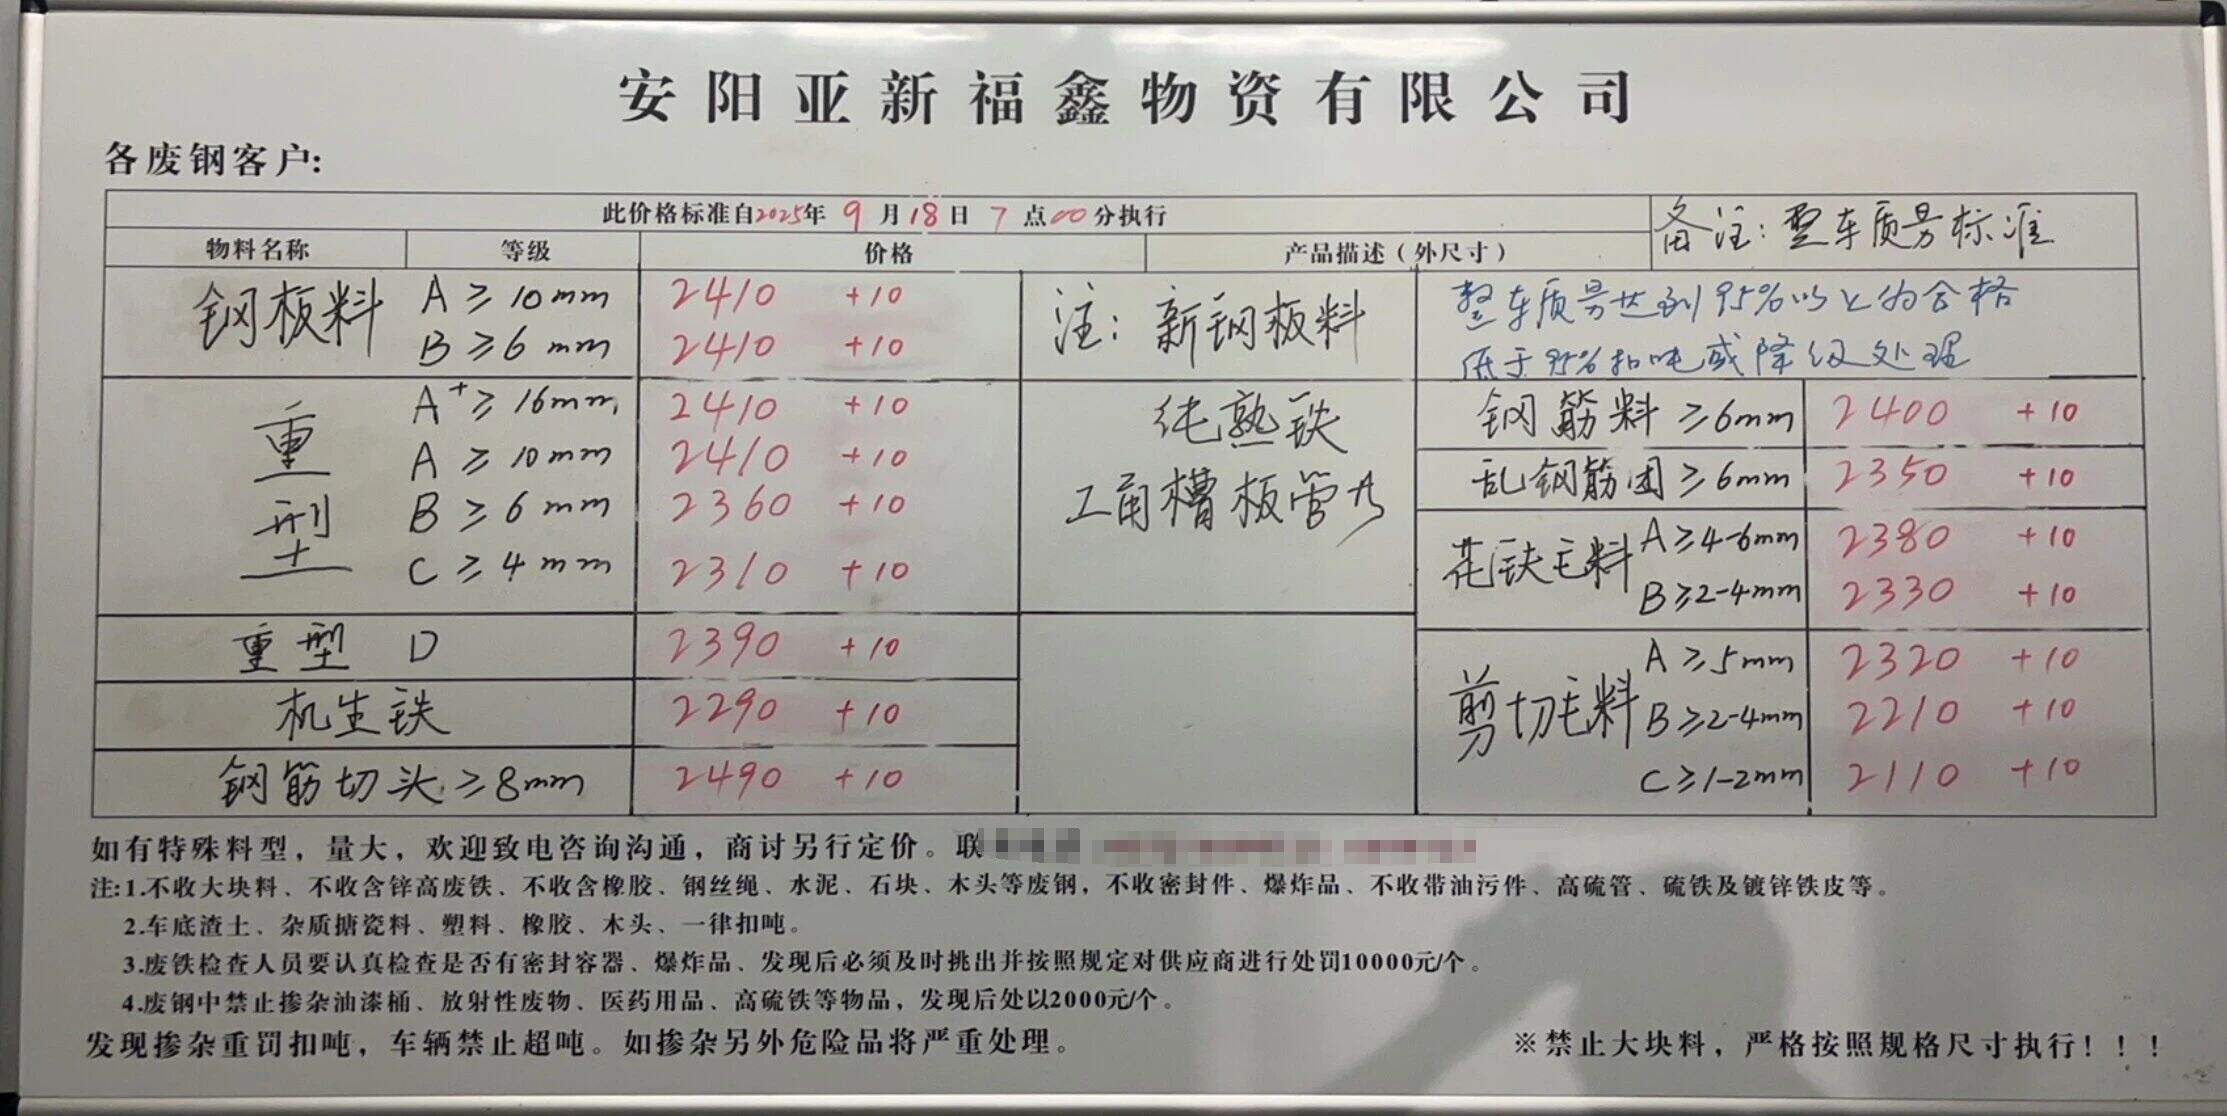 安阳亚新福鑫物资有限公司
各废钢客户:
此价格标准自2025年 9 月 18 日 7 点 00 分执行
备注: 整车质量标准
物料名称 等级 价格 产品描述（外尺寸）
钢板料 A ≥ 10mm 2410 +10
B ≥ 6 mm 2410 +10
注: 新钢板料
整车质量达到95%以上为合格
低于95%扣吨或降级处理
重型 A+ ≥ 16mm 2410 +10
A ≥ 10mm 2410 +10
B ≥ 6 mm 2360 +10
C ≥ 4 mm 2310 +10
纯熟铁
工角槽板管
重型 D 2390 +10
机生铁 2290 +10
钢筋切头 ≥ 8mm 2490 +10
钢筋料 ≥6mm 2400 +10
乱钢筋团 ≥6mm 2350 +10
花铁毛料 A ≥4-6mm 2380 +10
B ≥2-4mm 2330 +10
剪切毛料 A ≥5mm 2320 +10
B ≥2-4mm 2210 +10
C ≥1-2mm 2110 +10
如有特殊料型，量大，欢迎致电咨询沟通，商讨另行定价。联
注:1.不收大块料、不收含锌高废铁、不收含橡胶、钢丝绳、水泥、石块、木头等废钢，不收密封件、爆炸品、不收带油污件、高硫管、硫铁及镀锌铁皮等。
2.车底渣土、杂质搪瓷料、塑料、橡胶、木头、一律扣吨。
3.废铁检查人员要认真检查是否有密封容器、爆炸品、发现后必须及时挑出并按照规定对供应商进行处罚10000元/个。
4.废钢中禁止掺杂油漆桶、放射性废物、医药用品、高硫铁等物品，发现后处以2000元/个。
发现掺杂重罚扣吨，车辆禁止超吨。如掺杂另外危险品将严重处理。
※禁止大块料，严格按照规格尺寸执行！！！